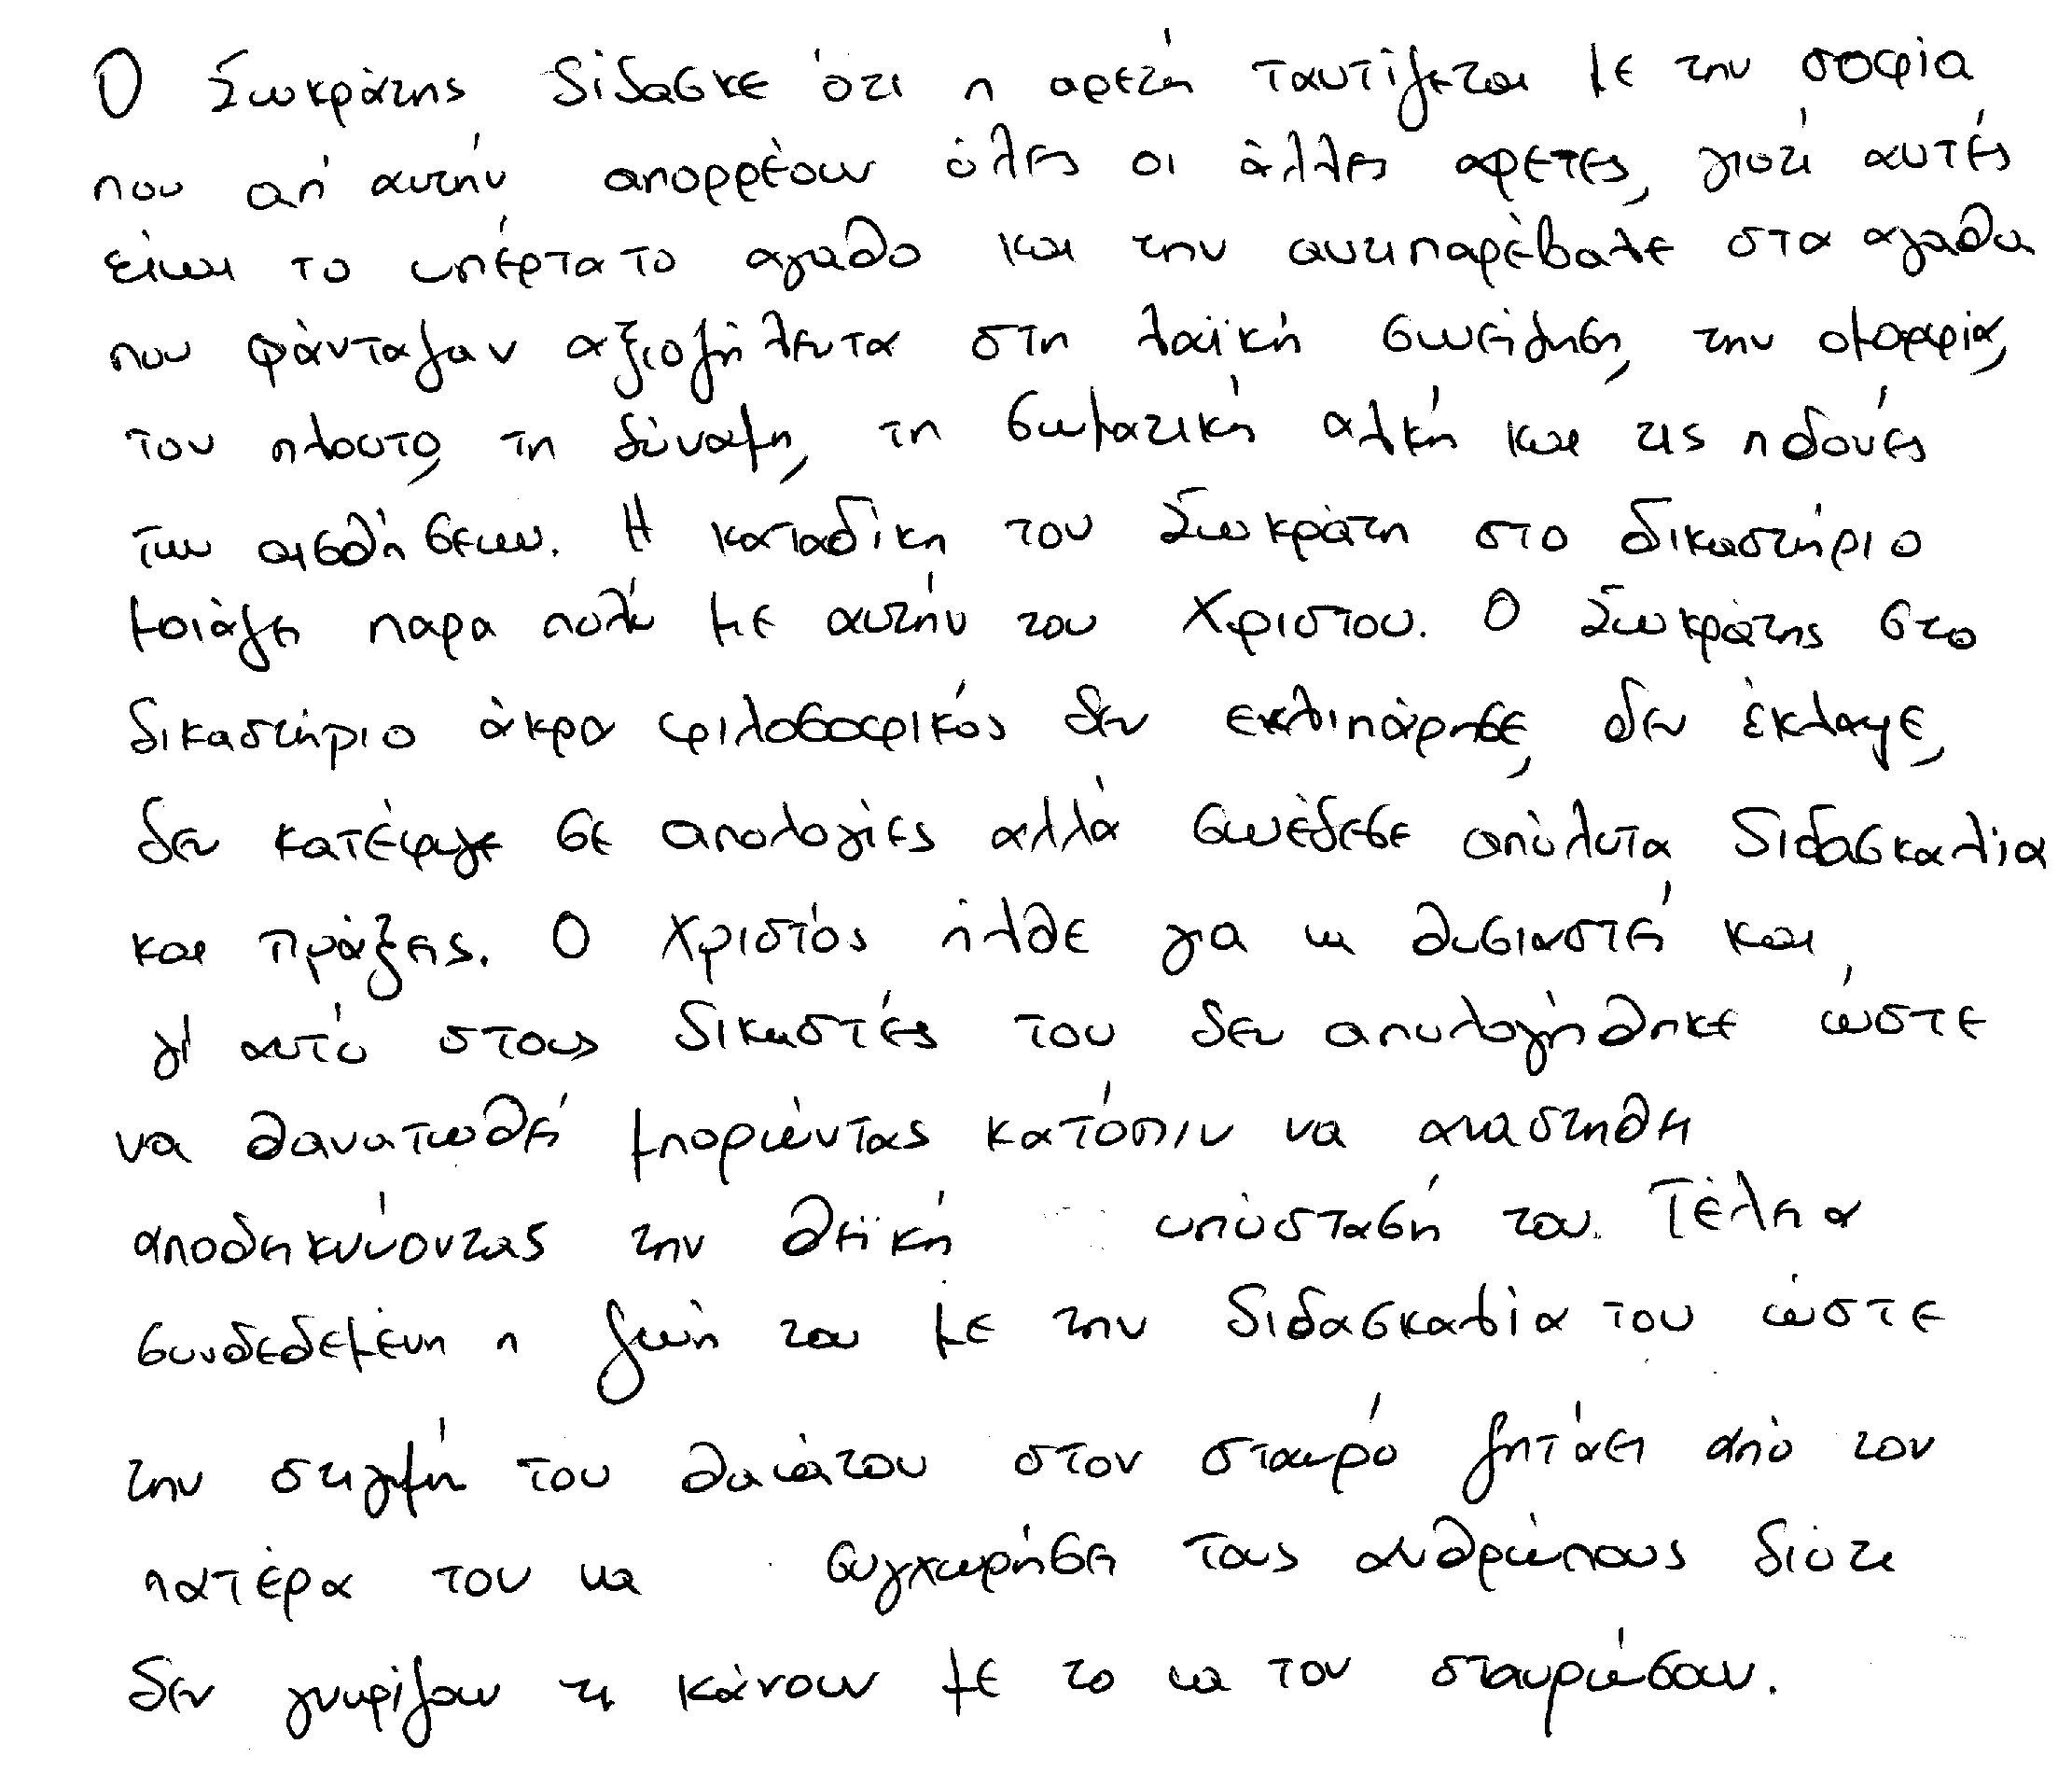 Ο Σωκράτης δίδασκε ότι η αρετή ταυτίζεται με την σοφία
που απ' αυτήν απορρέουν όλες οι άλλες αρετές, γιατί αυτές
είναι το υπέρτατο αγαθο και την αντιπαρέβαλε στα αγαθα
που φάνταζαν αξιοζήλευτα στη λαϊκή συνείδηση, την ομορφιά,
τον πλουτο, τη δύναμη, τη σωματική αλκή και τις ηδονές
των αισθήσεων. Η καταδίκη του Σωκράτη στο δικαστήριο
μοιάζει παρα πολύ με αυτήν του Χριστου. Ο Σωκράτης στο
δικαστήριο άκρα φιλοσοφικός δεν εκλιπάρησε, δεν έκλαψε,
δεν κατέφυγε σε απολογίες αλλά συνέδεσε απόλυτα διδασκαλία
και πράξεις. Ο Χριστός ήλθε για να θυσιαστεί και
γι' αυτό στους δικαστές του δεν απολογήθηκε ώστε
να θανατωθεί μπορώντας κατόπιν να αναστηθει
αποδεικνύοντας την θεϊκή υπόστασή του. Τέλεια
συνδεδεμένη η ζωή του με την διδασκαλία του ώστε
την στιγμή του θανάτου στον σταυρό ζητάει από τον
πατέρα του να συγχωρήσει τους ανθρώπους διότι
δεν γνωρίζουν τι κάνουν με το να τον σταυρώσουν.